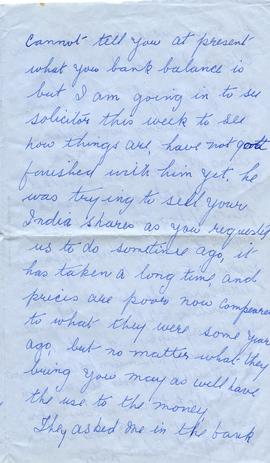 Cannot tell you at present
what you bank balance is
but I am going in to see
solicitor this week to see
how things are, have not quite
finished with him yet. he
was trying to sell your
India shares as you requested
us to do sometime ago, it
has taken a long time and
prices are poor now compeared
to what they were some years
ago, but no matter what they
bring you may as well have
the use to the money
They asked me in the bank